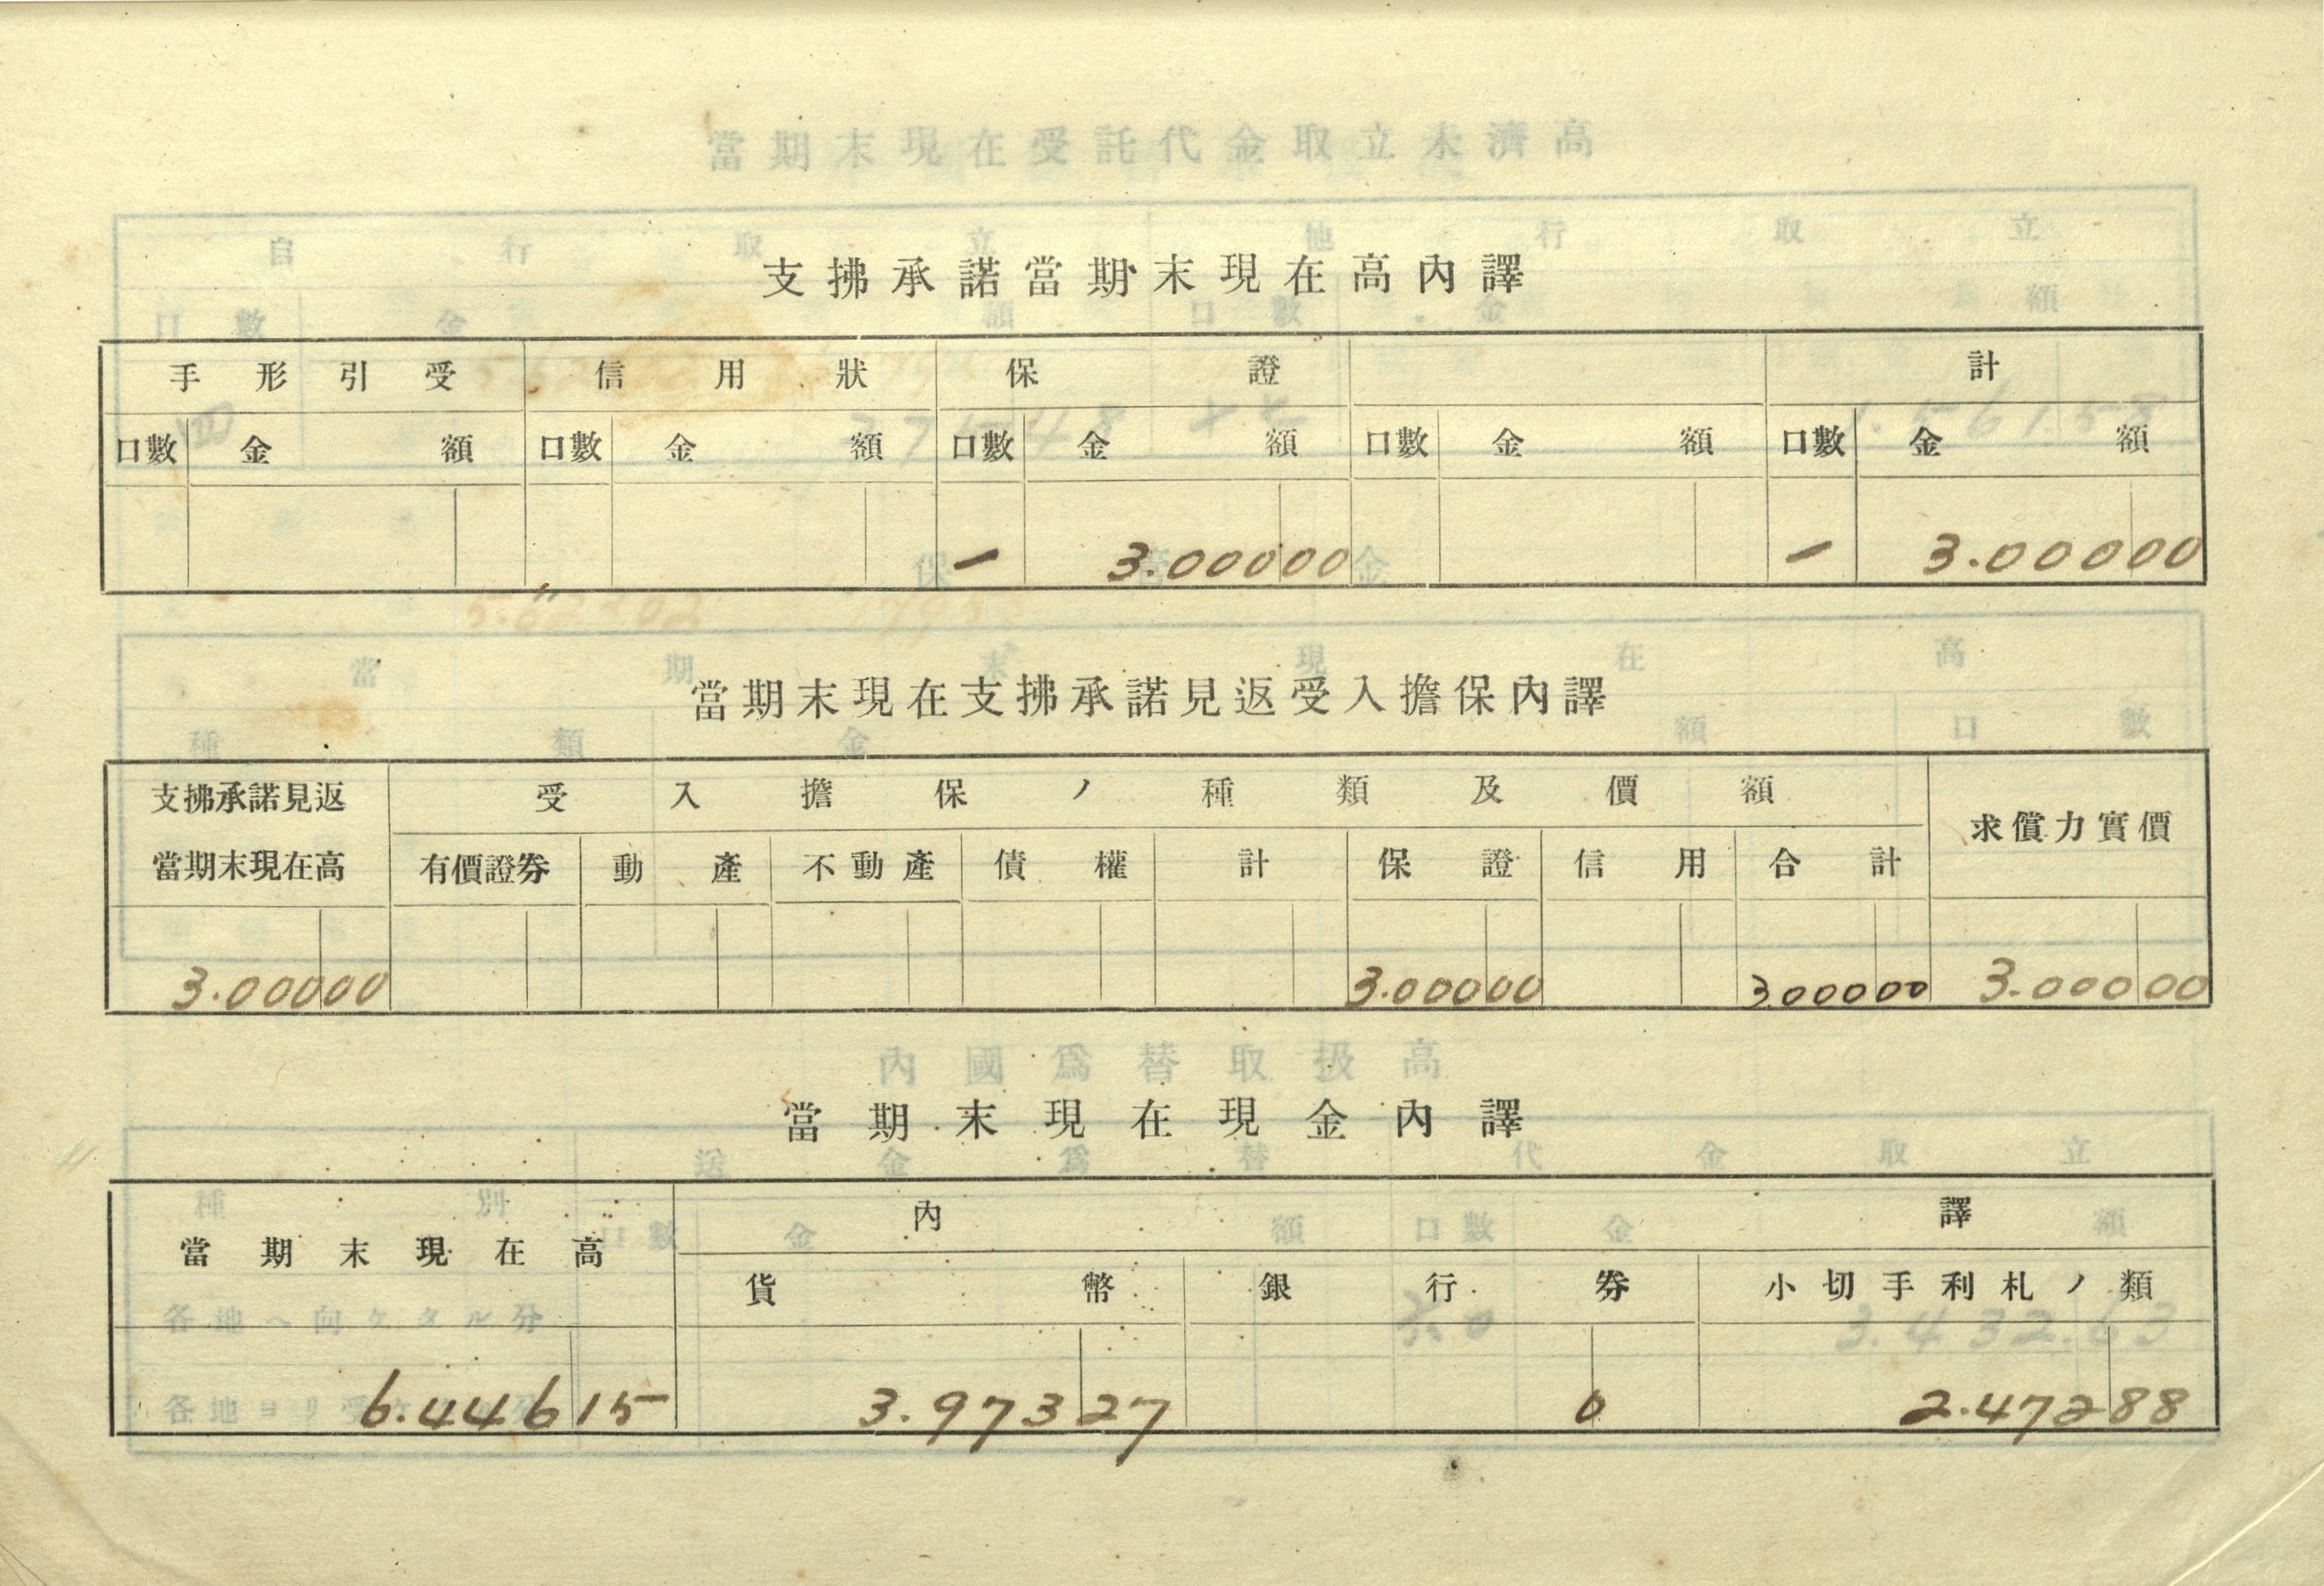 支拂承諾當期末現在高內譯
手形引受 信用狀 保證 計
口數 金額 口數 金額 口數 金額 口數 金額 口數 金額
一 3.00000 一 3.00000
當期末現在支拂承諾見返受入擔保內譯
支拂承諾見返當期末現在高 受入擔保ノ種類及價額 求償力實價
有價證券 動產 不動產 債權 計 保證 信用 合計
3.00000 3.00000 300000 3.00000
當期末現在現金內譯
當期末現在高 內譯
貨幣 銀行券 小切手利札ノ類
6.44615 3.97327 0 2.47288